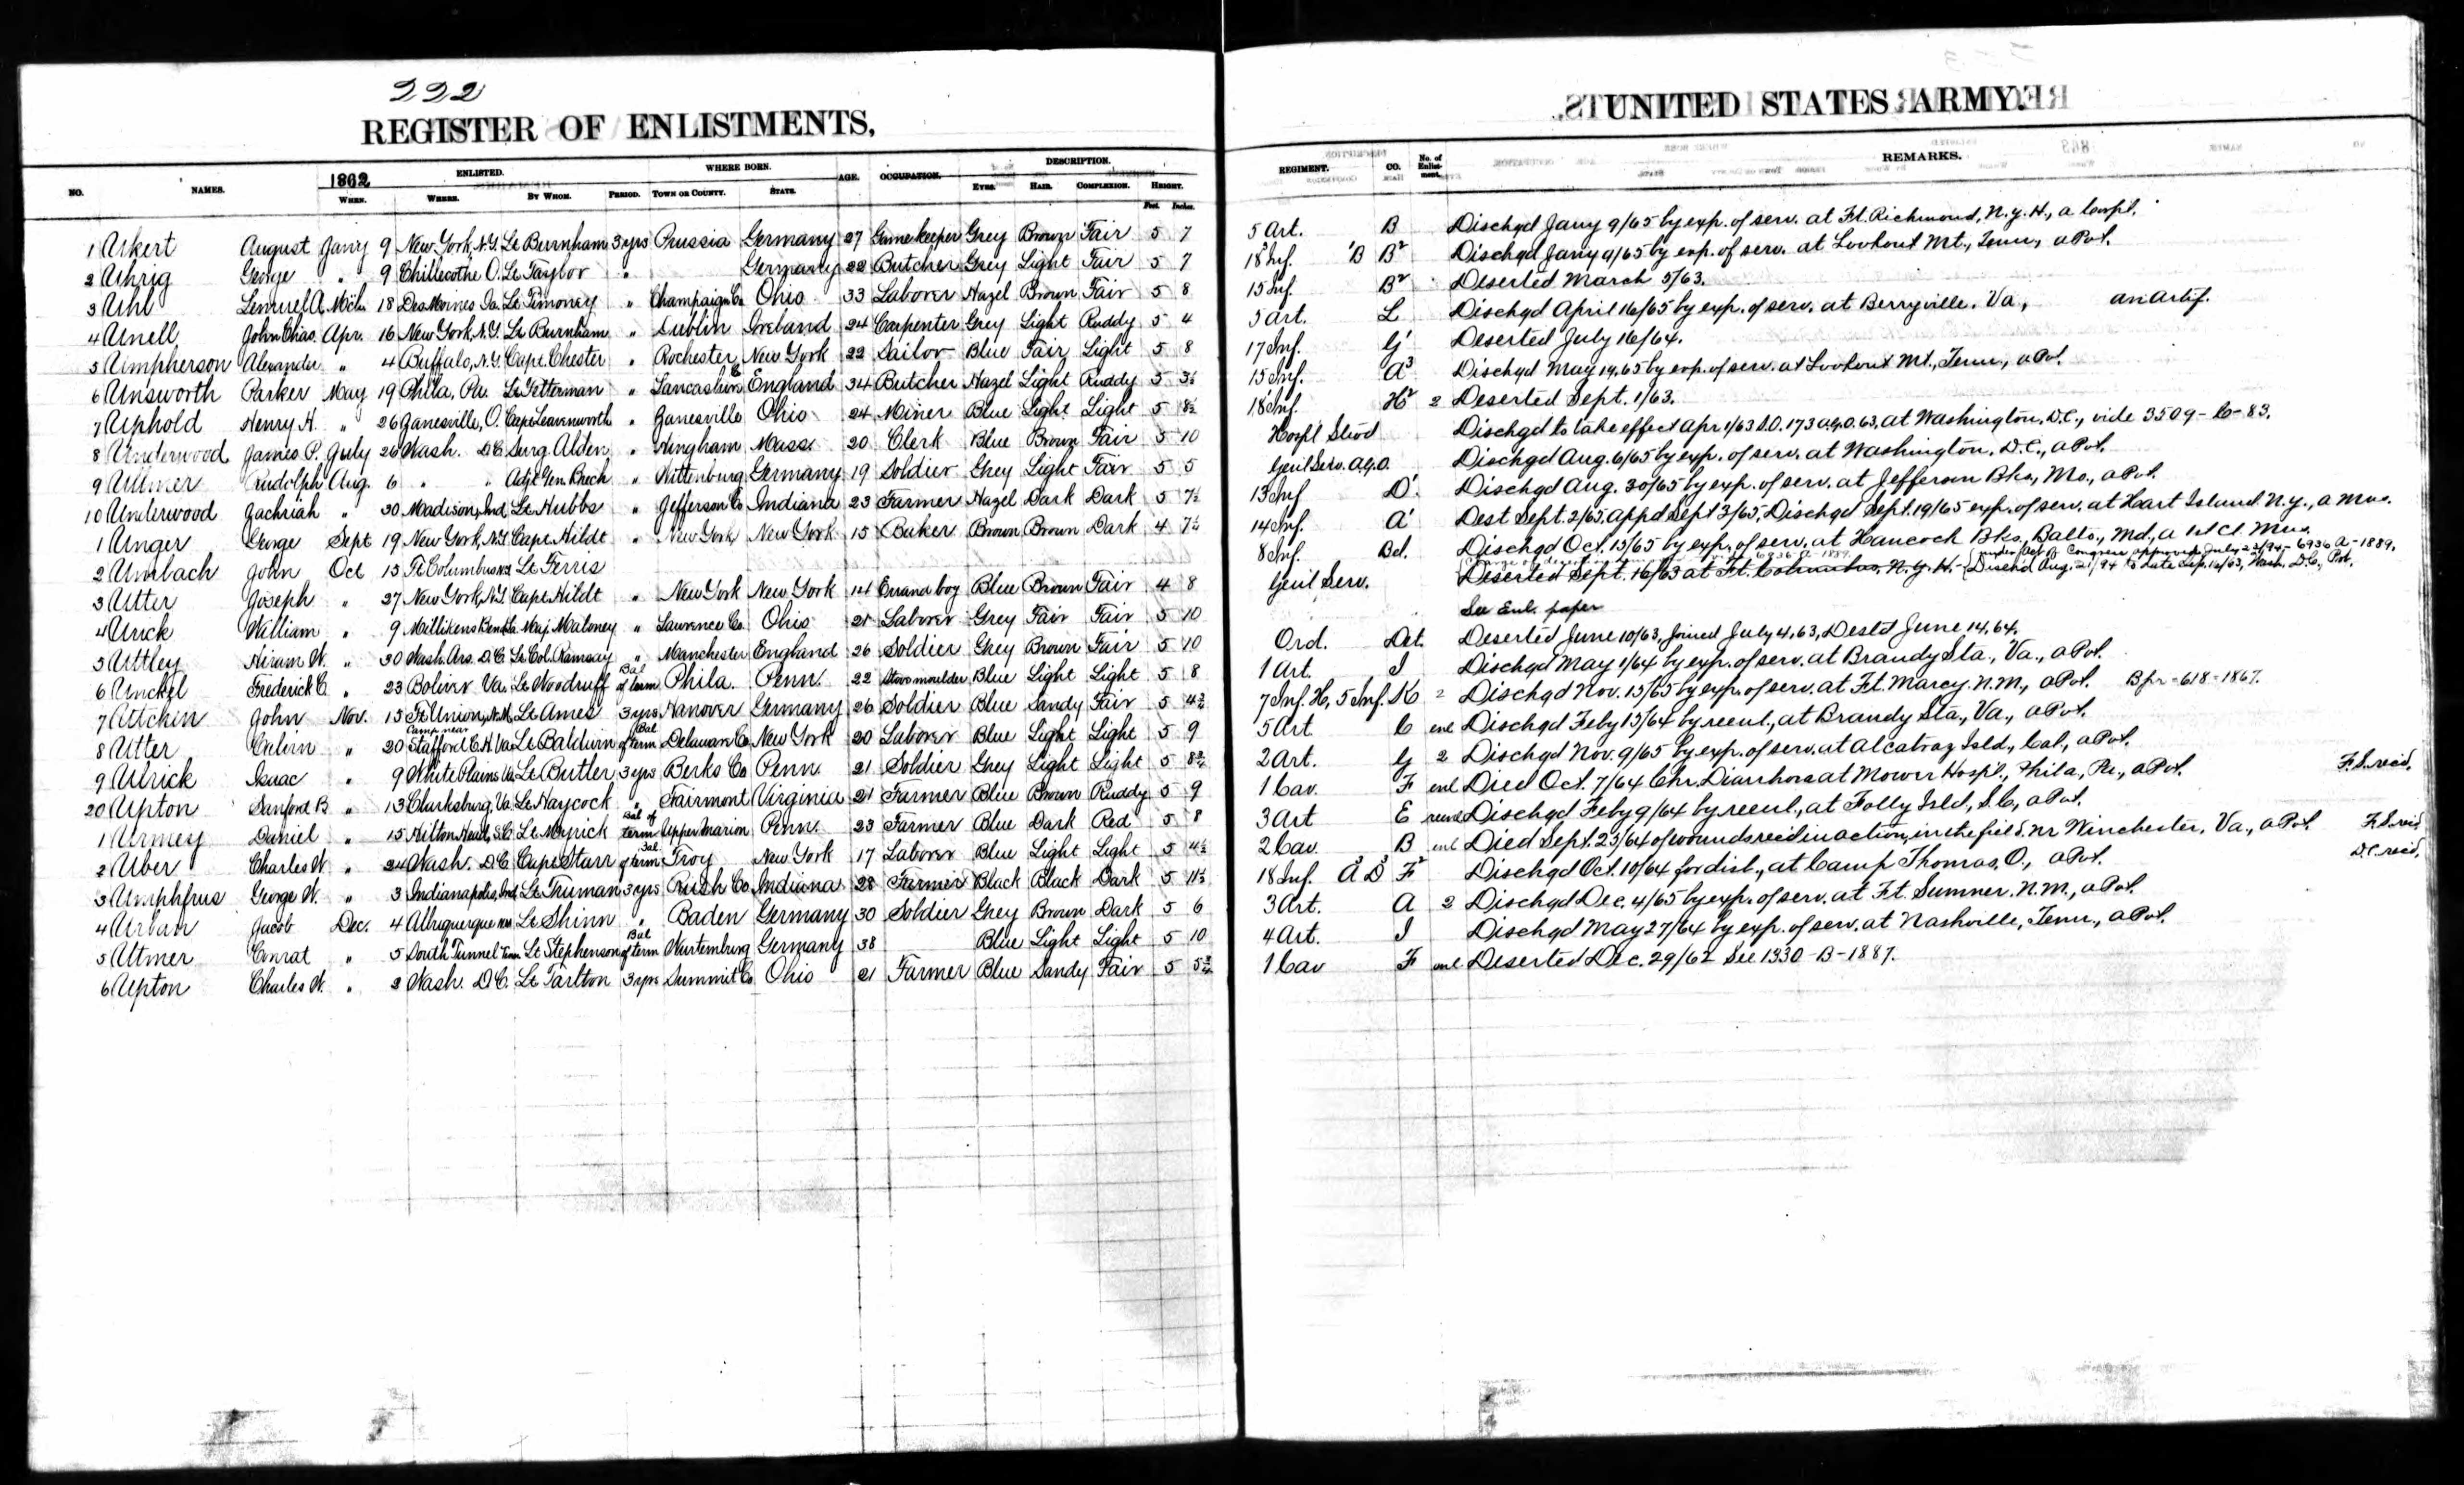 222
REGISTER OF ENLISTMENTS,
NO. NAMES. 1862 WHEN. ENLISTED. WHERE. BY WHOM. PERIOD. WHERE BORN. TOWN OR COUNTY. STATE. AGE. OCCUPATION. DESCRIPTION. EYES. HAIR. COMPLEXION. HEIGHT. Feet. Inches.
1 Uskert August Jany 9 New York, N.Y. Lt Burnham 3 yrs Prussia Germany 27 Gamekeeper Grey Brown Fair 5 7
2 Uhrig George " 9 Chillecothe O. Lt Taylor " Germany 22 Butcher Grey Light Fair 5 7
3 Uhl Lemuel A. Mch 18 Des Moines Ia. Lt Timoney " Champaign Co Ohio 33 Laborer Hazel Brown Fair 5 8
4 Unell, John Chas. Apr. 16 New York, N.Y. Lt Burnham " Dublin Ireland 24 Carpenter Grey Light Ruddy 5 4
5 Umpherson Alexander " 4 Buffalo, N.Y. Capt. Chester " Rochester New York 22 Sailor Blue Fair Light 5 8
6 Unsworth Parker May 19 Phila, Pa. Lt Fetterman " Lancashire England 34 Butcher Hazel Light Ruddy 5 3½
7 Uphold Henry H. " 26 Zanesville, O. Capt Leavenworth " Zanesville Ohio 24 Miner Blue Light Light 5 8½
8 Underwood James P. July 26 Wash. D.C. Surg. Alden " Hingham Mass. 20 Clerk Blue Brown Fair 5 10
9 Ullmer Rudolph Aug. 6 " " Adjt Gen Breck " Wittenburg Germany 19 Soldier Grey Light Fair 5 5
10 Underwood Zachriah " 30 Madison, Ind. Lt Hubbs " Jefferson Co Indiana 23 Farmer Hazel Dark Dark 5 7½
1 Unger George Sept 19 New York, N.Y. Capt. Hildt " New York New York 15 Baker Brown Brown Dark 4 7½
2 Umbach John Oct 13 Ft Columbus N.Y. Lt Ferris
3 Utter Joseph " 27 New York, N.Y. Capt. Hildt " New York New York 14 Errand boy Blue Brown Fair 4 8
4 Urick William " 9 Millikens Bend La. Maj. Maloney " Lawrence Co. Ohio 21 Laborer Grey Fair Fair 5 10
5 Uttley Hiram W. " 30 Wash. Ars. D.C. Lt Col. Ramsay " Manchester England 26 Soldier Grey Brown Fair 5 10
6 Unckel Frederick C. " 23 Boliver Va. Lt Woodruff Bal of term Phila. Penn. 22 Stove moulder Blue Light Light 5 8
7 Uttchin John Nov. 15 Ft Union, N.M. Lt Ames 3 yrs Hanover Germany 26 Soldier Blue Sandy Fair 5 4¾
8 Utter Calvin " 20 Camp near Stafford C.H. Va. Lt Baldwin Bal of term Delaware Co New York 20 Laborer Blue Light Light 5 9
9 Ulrick Isaac " 9 White Plains Va. Lt Butler 3 yrs Berks Co Penn. 21 Soldier Grey Light Light 5 8½
20 Upton Sanford B. " 13 Clarksburg, Va. Lt Haycock " Fairmont Virginia 21 Farmer Blue Brown Ruddy 5 9
1 Urmey Daniel " 15 Hilton Head, S.C. Lt Myrick Bal of term Upper Marion Penn. 23 Farmer Blue Dark Red 5 8
2 Uber Charles W. " 24 Wash. D.C. Capt Starr Bal of term Troy New York 17 Laborer Blue Light Light 5 4½
3 Umphfrus George W. " 3 Indianapolis, Ind. Lt Truman 3 yrs Rush Co Indiana 28 Farmer Black Black Dark 5 11½
4 Urban Jacob Dec. 4 Albuquerque N.M. Lt Shinn " Baden Germany 30 Soldier Grey Brown Dark 5 6
5 Ultmer Conrat " 5 South Tunnel Tenn Lt Stephenson Bal of term Wurtemburg Germany 38 Blue Light Light 5 10
6 Upton Charles W. " 2 Wash. D.C. Lt Tarlton 3 yrs Summit Co Ohio 21 Farmer Blue Sandy Fair 5 5¾
UNITED STATES ARMY.
REGIMENT. CO. No. of Enlistment. REMARKS.
5 Art. B Dischgd Jany 9/65 by exp. of serv. at Ft. Richmond, N.Y.H., a Corpl.
18 Inf. B B² Dischgd Jany 9/65 by exp. of serv. at Lookout Mt., Tenn, a Pvt.
15 Inf. B² Deserted March 5/63.
5 Art. L Dischgd April 16/65 by exp. of serv. at Berryville. Va, an artif.
17 Inf. G' Deserted July 16/64.
15 Inf. A³ Dischgd May 19, 65 by exp. of serv. at Lookout Mt., Tenn., a Pvt.
18 Inf. H² 2 Deserted Sept. 1/63.
Hospl Stwd Dischgd to take effect Apr 1/63 S.O. 173 A.G.O. 63, at Washington, D.C., vide 3509-C-83.
Genl Serv. A.G.O. Dischgd Aug. 6/65 by exp. of serv. at Washington, D.C., a Pvt.
13 Inf D'. Dischgd Aug. 30/65 by exp. of serv. at Jefferson Bks, Mo., a Pvt.
14 Inf. A' Dest Sept. 2/65, Appd Sept 3/65, Dischgd Sept. 19/65 exp. of serv. at Hart Island N.Y., a Mus.
8 Inf. Bd. Dischgd Oct. 13/65 by exp. of serv. at Hancock Bks., Balto., Md., a 1st Cl. Mus.
Genl Serv. Deserted Sept. 16/63 at Ft. Columbus, N.Y.H. under Act of Congress approved July 22/94 - 6936 A-1889. Disch'd Aug. 21/94 to date Sep. 16/63, Wash. D.C., Pvt.
See Enl. paper
Ord. Det. Deserted June 10/63, Joined July 4, 63, Dest'd June 14, 64.
1 Art. I Dischgd May 1/64 by exp. of serv. at Brandy Sta., Va., a Pvt.
7 Inf. H, 5 Inf. K 2 Dischgd Nov. 15/65 by exp. of serv. at Ft. Marcy. N.M., a Pvt. B pr - 618 - 1867.
5 Art C enl Dischgd Feby 13/64 by reenl., at Brandy Sta., Va., a Pvt.
2 Art. G 2 Dischgd Nov. 9/65 by exp. of serv. at Alcatraz Isld., Cal., a Pvt.
1 Cav. F enl Died Oct. 7/64 Chr. Diarrhoea at Mower Hospl., Phila, Pa., a Pvt. F.S. recd.
3 Art E Dischgd Feby 9/64 by reenl., at Folly Isld., S.C., a Pvt.
2 Cav B enl Died Sept. 23/64 of wounds recd in action, in the field. nr Winchester. Va., a Pvt. F.S. recd.
18 Inf. A³ D³ F² Dischgd Oct. 10/64 for disb., at Camp Thomas, O., a Pvt. D.C. recd.
3 Art. A 2 Dischgd Dec. 4/65 by exp. of serv. at Ft. Sumner. N.M., a Pvt.
4 Art. I Dischgd May 27/64 by exp. of serv. at Nashville, Tenn., a Pvt.
1 Cav F enl Deserted Dec. 29/62 See 1330-B-1887.